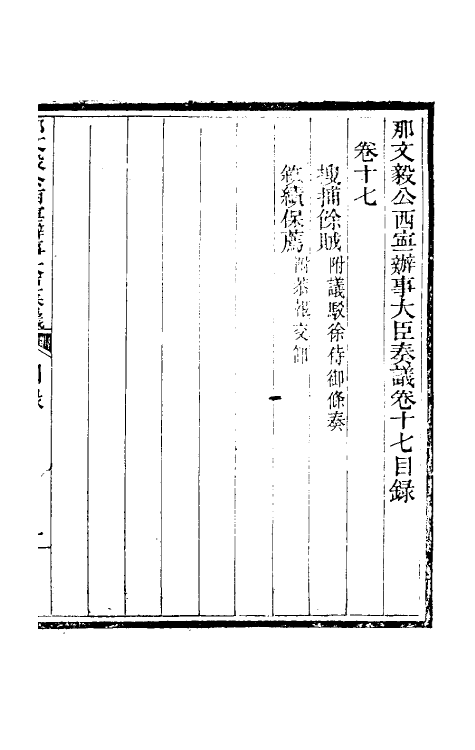 那文毅公西寧辦事大臣奏議卷十七目錄
卷十七
搜捕餘賊附議駁徐侍御條奏
敘績保薦附恭報交卸
目錄
一